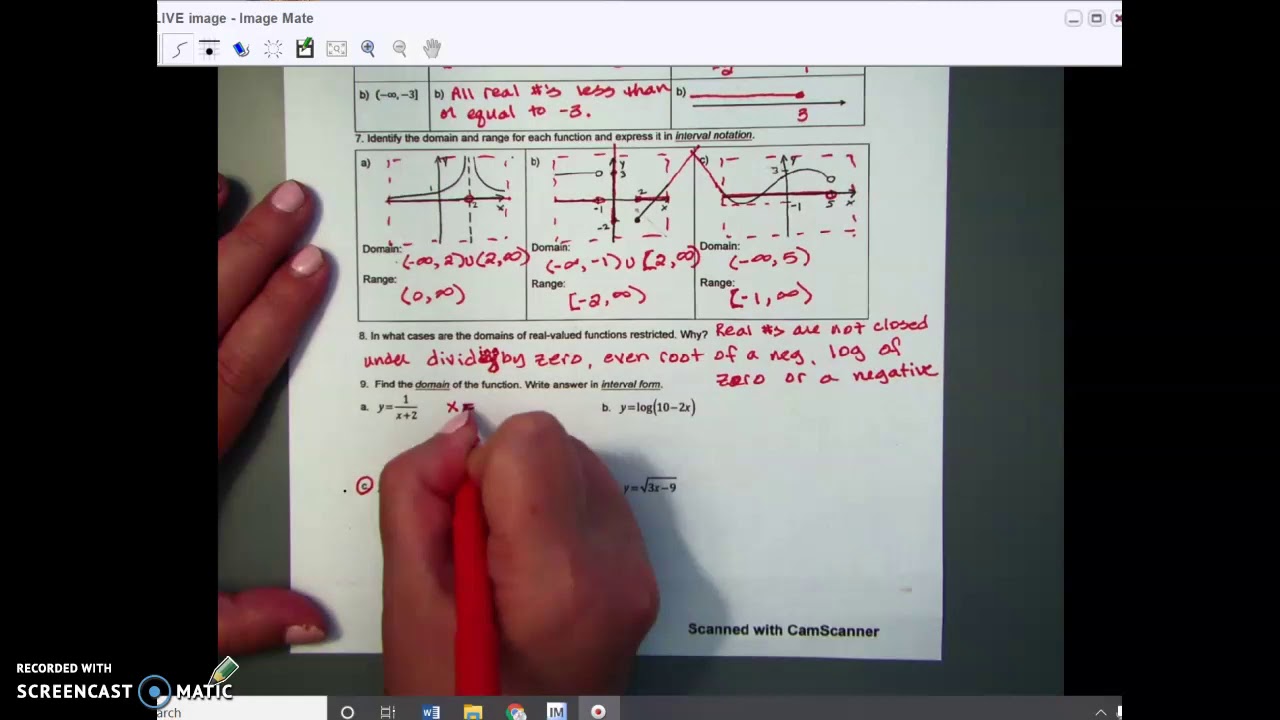 LIVE image - Image Mate
-2
b) (-∞, -3]
b) All real #'s less than
or equal to -3.
b)
3
7. Identify the domain and range for each function and express it in interval notation.
a)
b)
c)
y
1
2
x
y
3
-1
2
x
-2
3
y
-1
5
x
Domain:
(-∞, 2)∪(2,∞)
Range:
(0, ∞)
Domain:
(-∞, -1)∪[2,∞)
Range:
[-2, ∞)
Domain:
(-∞, 5)
Range:
[-1, ∞)
8. In what cases are the domains of real-valued functions restricted. Why? Real #s are not closed
under dividing by zero, even root of a neg, log of
zero or a negative
9. Find the domain of the function. Write answer in interval form.
a. y=1/(x+2) x=
b. y=log(10-2x)
c
y=√3x-9
Scanned with CamScanner
RECORDED WITH
SCREENCAST MATIC
arch
W
IM